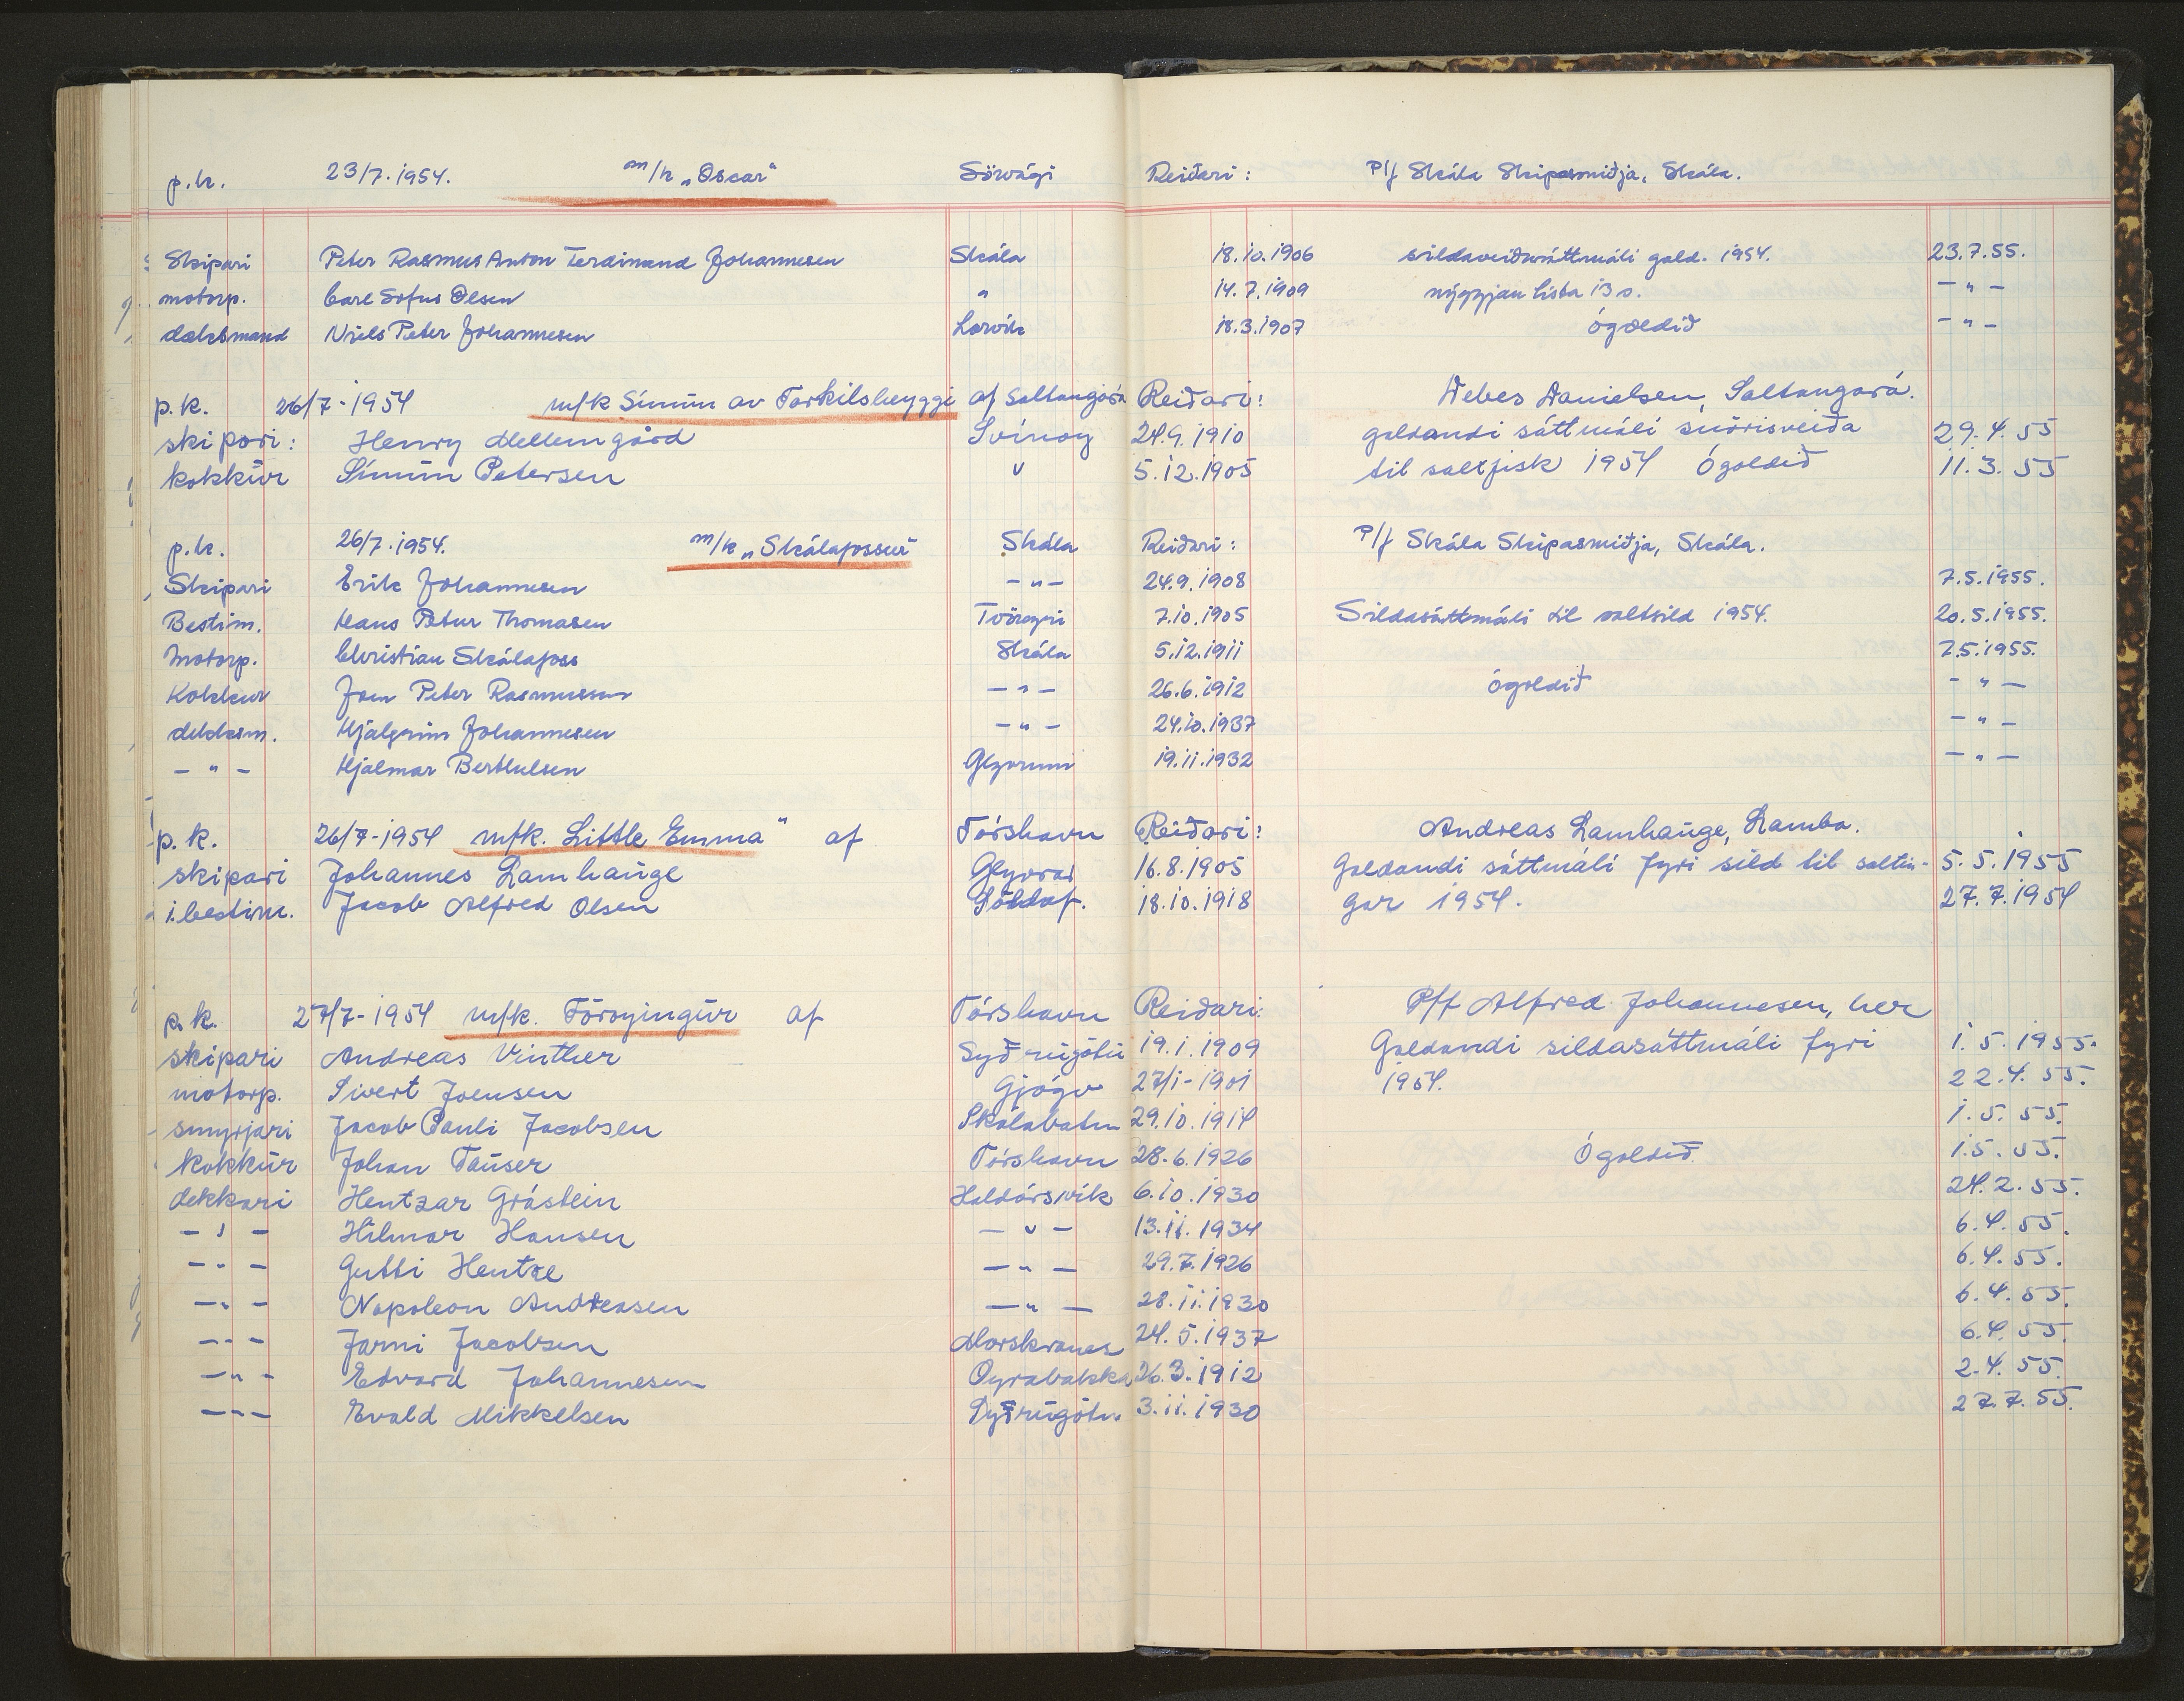 p.k. 23/7.1954. m/k „Oscar" Sörvági Reiðari: P/f Skála Skipasmiðja, Skála.
Skipari Peter Rasmus Anton Ferdinand Johannesen Skála 18.10.1906 sildaveiðusáttmáli gald. 1954. 23.7.55.
motorp. Carl Sofus Olsen " 14.7.1909 lista 13 s. -"-
dæksmand Niels Peter Johannesen Lorvík 18.3.1907 ógoldið -"-
p.k. 26/7-1954 m/k Símun av Torkilsheyggi af Saltangará Reiðari: Debes Danielsen, Saltangará.
skipari: Henry Mellemgård Svínoy 24.9.1910 galdandi sáttmáli snörisveiða 29.4.55
kokkur Símun Petersen " 5.12.1905 til saltfisk 1954 Ógoldið 11.3.55
p.k. 26/7.1954. m/k „Skálafossur" Skála Reiðari: P/f Skála Skipasmiðja, Skála.
Skipari Erik Johannesen -"- 24.9.1908 7.5.1955.
Bestim. Hans Petur Thomasen Tvöroyri 7.10.1905 Sildasáttmáli til saltsild 1954. 20.5.1955.
Motorp. Christian Skálafoss Skála 5.12.1911 7.5.1955.
Kokkur Joen Peter Rasmussen -"- 26.6.1912 ógoldið -"-
dekksm. Hjálgrim Johannesen -"- 24.10.1937 -"-
-"- Hjalmar Berthelsen Glyvrum 19.11.1932 -"-
p.k. 26/7-1954 m/k. Little Emma" af Tórshavn Reiðari: Andreas Lamhauge, Lamba.
skipari Johannes Lamhauge Glyvrar 16.8.1905 Galdandi sáttmáli fyri sild til saltin- 5.5.1955
i.bestim. Jacob Alfred Olsen Söldaf. 18.10.1918 gar 1954. 27.7.1954
p.k. 27/7-1954 m/k. Föroyingur af Tórshavn Reiðari: P/f Alfred Johannesen, her
skipari Andreas Vinther Syðrugötu 19.1.1909 Galdandi sildasáttmáli fyri 1.5.1955.
motorp. Sivert Joensen Gjógv 27/1-1901 1954. 22.4.55.
smyrjari Jacob Pauli Jacobsen Skálabotn 29.10.1914 1.5.55.
kokkur Johan Tauser Tórshavn 28.6.1926 Ógoldið. 1.5.55.
dekkari Hentzar Grástein Haldórsvík 6.10.1930 24.2.55.
-"- Hilmar Hansen -"- 13.11.1934 6.4.55.
-"- Gutti Hentze -"- 29.7.1926 6.4.55.
-"- Napoleon Andreasen -"- 28.11.1930 6.4.55.
-"- Jarni Jacobsen Morskranes 24.5.1937 6.4.55.
-"- Edvard Johannesen Oyrabakka 26.3.1912 2.4.55.
-"- Evald Mikkelsen Syðrugötu 3.11.1930 27.7.55.